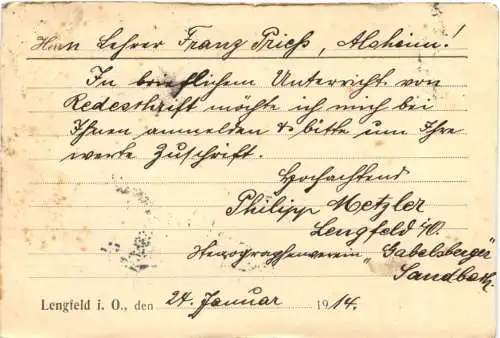 Herrn Lehrer Franz Prieß, Alsheim!
In brieflichem Unterricht von
Redeschrift möchte ich mich bei
Ihnen anmelden & bitte um Ihre
werte Zuschrift.
Hochachtend
Philipp Metzler
Lengfeld i/O.
Stenographenverein "Gabelsberger"
Sandbach.
Lengfeld i. O., den 24. Januar 1914.